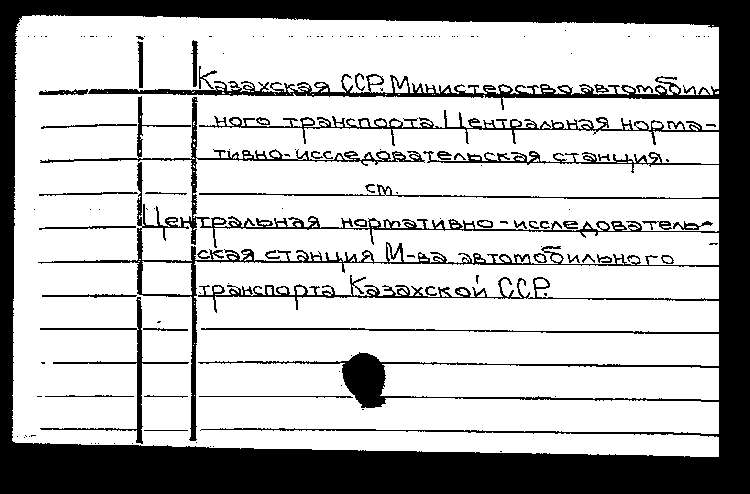 Казахская ССР. Министерство автомобиль
ного транспорта. Центральная норма-
тивно-исследовательская станция.
см.
Центральная нормативно-исследователь-
ская станция М-ва автомобильного
транспорта Казахской ССР.